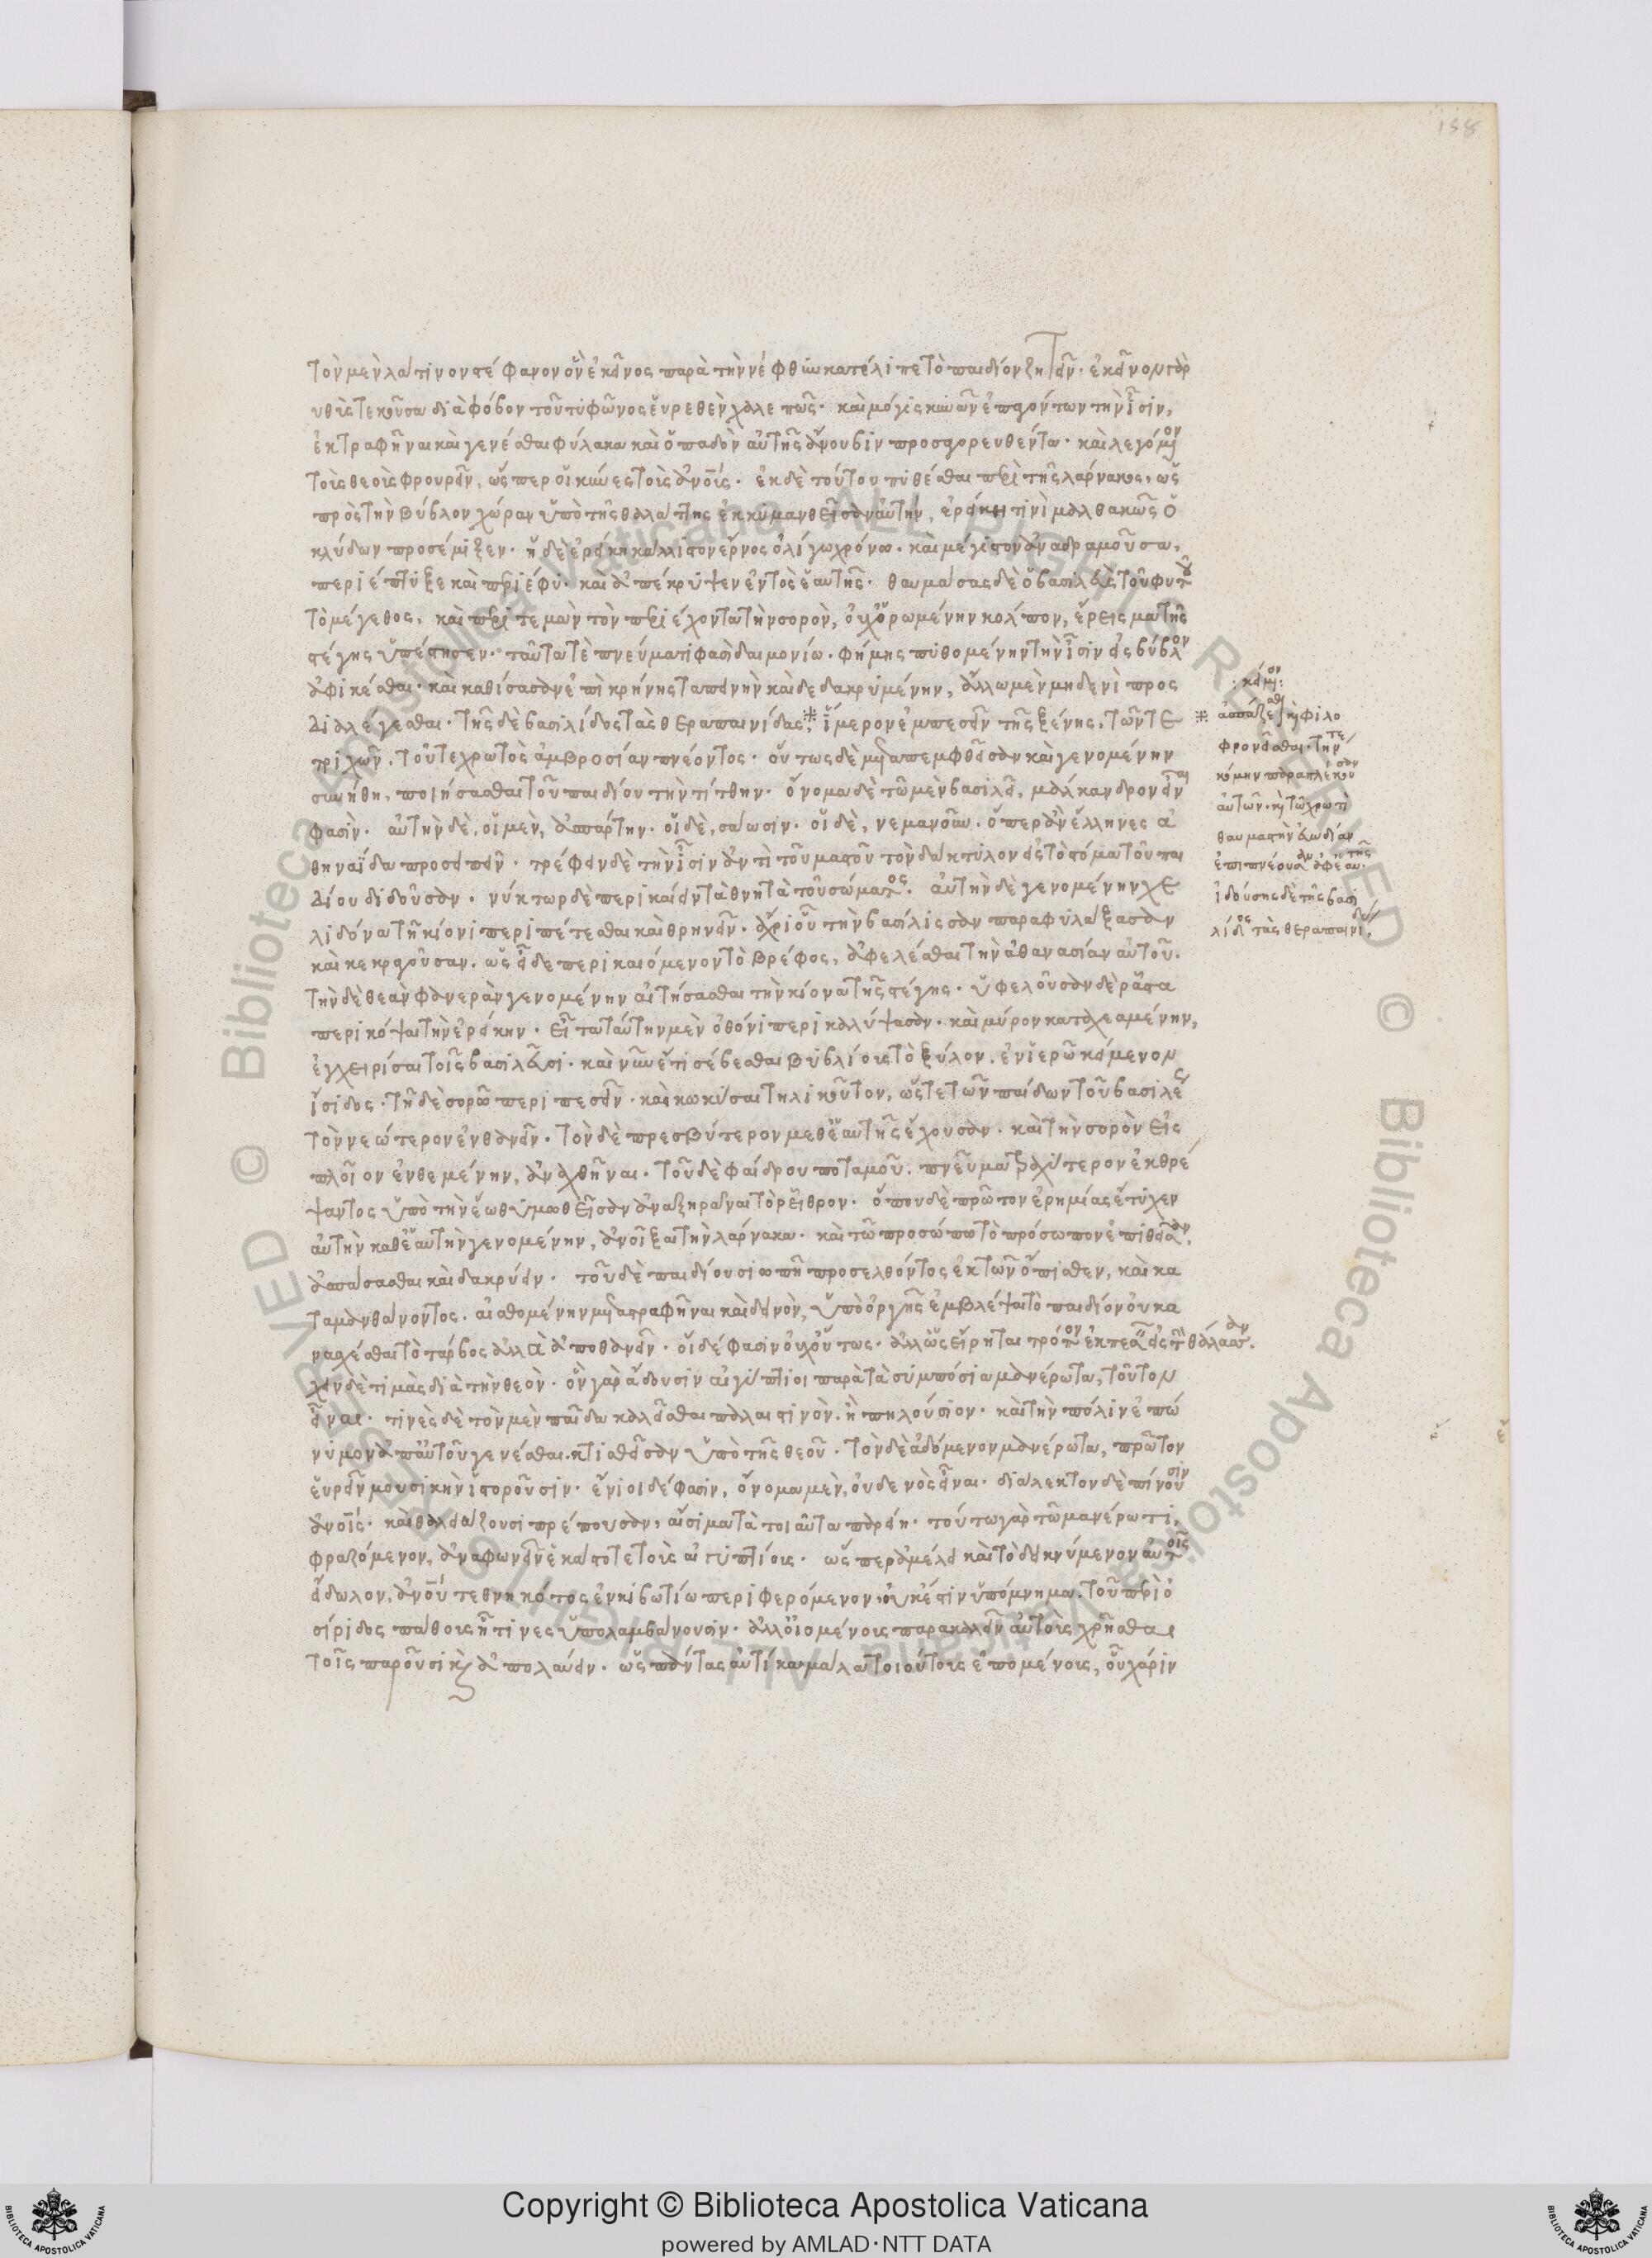 158
τὸν μελιλώτινον στέφανον ὃν ἐκεῖνος παρὰ τὴν νέφθιν κατέλιπε τὸ παιδίον ζητεῖν. ἐκεῖνο μὲν γὰρ
εὐθὺς τεκοῦσαν διὰ φόβον τοῦ τυφῶνος εὑρεθὲν χαλεπῶς. καὶ μόγις κυνῶν ἐπαγόντων τὴν ἶσιν,
ἐκτραφῆναι καὶ γενέσθαι φύλακα καὶ ὀπαδὸν αὐτῆς ἄνουβιν προσαγορευθέντα. καὶ λεγόμενον
τοὺς θεοὺς φρουρεῖν, ὥσπερ οἱ κύνες τοὺς ἀνους. ἐκ δὲ τούτου πυθέσθαι περὶ τῆς λάρνακος, ὡς
πρὸς τὴν βύβλον χώραν ὑπὸ τῆς θαλάττης ἐκκυμανθεῖσαν αὐτὴν, ἐρείκῃ τινὶ μαλθακῶς ὁ
κλύδων προσέμιξεν. ἡ δὲ ἐρείκη κάλλιστον ἔρνος ὀλίγῳ χρόνῳ. καὶ μέγιστον ἀναδραμοῦσα,
περιέπτυξε καὶ περιέφυ. καὶ ἀπέκρυψεν ἐντὸς ἑαυτῆς. θαυμάσας δὲ ὁ βασιλεὺς τοῦ φυτοῦ
τὸ μέγεθος, καὶ περιτεμὼν τὸν περιέχοντα τὴν σορὸν, οὐχ ὁρωμένην κόλπον, ἔρεισμα τῆς
στέγης ὑπέστησεν. ταῦτά τε πνεύματί φασι δαιμονίῳ. φήμης πυθομένην τὴν ἶσιν εἰς βύβλον
ἀφικέσθαι. καὶ καθίσασαν ἐπὶ κρήνης ταπεινὴν καὶ δεδακρυμένην, ἄλλῳ μὲν μηδενὶ προς
διαλέγεσθαι. τῆς δὲ βασιλίδος τὰς θεραπαινίδας * ἵμερον ἐμπεσεῖν τῆς ξένης. τῶν τε
τριχῶν. τοῦ τε χρωτὸς ἀμβροσίαν πνέοντος. οὕτως δὲ μεταπεμφθεῖσαν καὶ γενομένην
συνήθη, ποιήσασθαι τοῦ παιδίου τὴν τίτθην. ὄνομα δὲ τῷ μὲν βασιλεῖ, μάλκανδρον εἶναί
φασὶν. αὐτὴν δὲ, οἱ μὲν, ἀσπάρτην. οἱ δὲ, σάωσιν. οἱ δὲ, νεμανοῦν. ὅπερ ἂν ἕλληνες ἀ
θηναΐδα προσείπειν. τρέφειν δὲ τὴν ἶσιν ἀντὶ τοῦ μαστοῦ τὸν δάκτυλον εἰς τὸ στόμα τοῦ παι
δίου διδοῦσαν. νύκτωρ δὲ περικαίειν τὰ θνητὰ τοῦ σώματος. αὐτὴν δὲ γενομένην χε
λιδόνα τῇ κίονι περιπέτεσθαι καὶ θρηνεῖν. ἄχρι οὗ τὴν βασίλισσαν παραφυλάξασαν
καὶ κεκραγοῦσαν. ὡς εἶδε περικαιόμενον τὸ βρέφος, ἀφελέσθαι τὴν ἀθανασίαν αὐτοῦ.
τὴν δὲ θεὰν φανερὰν γενομένην αἰτήσασθαι τὴν κίονα τῆς στέγης. ὑφελοῦσαν δὲ ῥᾷστα
περικόψαι τὴν ἐρείκην. εἶτα ταύτην μὲν ὀθόνῃ περικαλύψασαν. καὶ μύρον καταχεαμένην,
ἐγχειρίσαι τοῖς βασιλεῦσι. καὶ νῦν ἔτι σέβεσθαι βυβλίους τὸ ξύλον. ἐν ἱερῷ κείμενον
ἴσιδος. τῇ δὲ σορῷ περιπεσεῖν. καὶ κωκύσαι τηλικοῦτον, ὥστε τῶν παίδων τοῦ βασιλέως
τὸν νεώτερον ἐνθανεῖν. τὸν δὲ πρεσβύτερον μεθ ἑαυτῆς ἔχουσαν. καὶ τὴν σορὸν εἰς
πλοῖον ἐνθεμένην, ἀναχθῆναι. τοῦ δὲ φαίδρου ποταμοῦ. πνεῦμα τραχύτερον ἐκθρέ
ψαντος ὑπὸ τὴν ἕω θυμωθεῖσαν ἀναξηράναι τὸ ῥεῖθρον. ὅπου δὲ πρῶτον ἐρημίας ἔτυχεν
αὐτὴν καθ ἑαυτὴν γενομένην, ἀνοῖξαι τὴν λάρνακα. καὶ τῷ προσώπῳ τὸ πρόσωπον ἐπιθεῖσαν.
ἀσπάσασθαι καὶ δακρύειν. τοῦ δὲ παιδίου σιωπῇ προσελθόντος ἐκ τῶν ὄπισθεν, καὶ κα
ταμανθάνοντος. αἰσθομένην μεταστραφῆναι καὶ δεινὸν, ὑπὸ ὀργῆς ἐμβλέψαι τὸ παιδίον οὐκ ἀ
νασχέσθαι τὸ τάρβος ἀλλὰ ἀποθανεῖν. οἱ δέ φασιν οὐχ οὕτως. ἀλλ ὡς εἴρηται τρόπον ἐκπεσεῖν εἰς τὴν θάλασσαν.
ἔχειν δὲ τιμὰς διὰ τὴν θεὸν. ὃν γὰρ ᾄδουσιν αἰγύπτιοι παρὰ τὰ συμπόσια μανέρωτα, τοῦτον
εἶναι. τινὲς δὲ τὸν μὲν παῖδα καλεῖσθαι παλαιστινὸν. ἢ πηλούσιον. καὶ τὴν πόλιν ἐπώ
νυμον ἀπ αὐτοῦ γενέσθαι. κτισθεῖσαν ὑπὸ τῆς θεοῦ. τὸν δὲ ᾀδόμενον μανέρωτα, πρῶτον
εὑρεῖν μουσικὴν ἱστοροῦσιν. ἔνιοι δέ φασιν, ὄνομα μὲν, οὐδενὸς εἶναι. διάλεκτον δὲ πίνουσιν
ἀνοις. καὶ θαλειάζουσι πρέπουσαν, αἴσιμα τὰ τοιαῦτα παρείη. τούτῳ γὰρ τῷ μανέρωτι,
φραζόμενον, ἀναφωνεῖν ἑκάστοτε τοὺς αἰγυπτίους. ὥσπερ ἀμέλει καὶ τὸ δεικνύμενον αὐτοῖς
εἴδωλον, ἀνου τεθνηκότος ἐν κιβωτίῳ περιφερόμενον, οὐκ ἔστιν ὑπόμνημα τοῦ περὶ ὀ
σίριδος πάθους ᾗ τινες ὑπολαμβάνουσιν. ἀλλ οἰομένους παρακαλεῖν αὐτοὺς χρῆσθαι
τοῖς παροῦσι καὶ ἀπολαύειν. ὡς πάντας αὐτίκα μάλα τοιούτους ἐπομένους, οὗ χάριν
: κείμενον :
* ἀσπάζεσθαι καὶ φιλο
φρονεῖσθαι. τήν τε
κόμην παραπλέκουσαν
αὐτῶν. καὶ τῷ χρωτὶ
θαυμαστὴν εὐωδίαν
ἐπιπνέουσαν ἀφ ἑαυτῆς
ἰδούσης δὲ τῆς βασι
λίδος τὰς θεραπαινίδας,
Copyright © Biblioteca Apostolica Vaticana
powered by AMLAD·NTT DATA